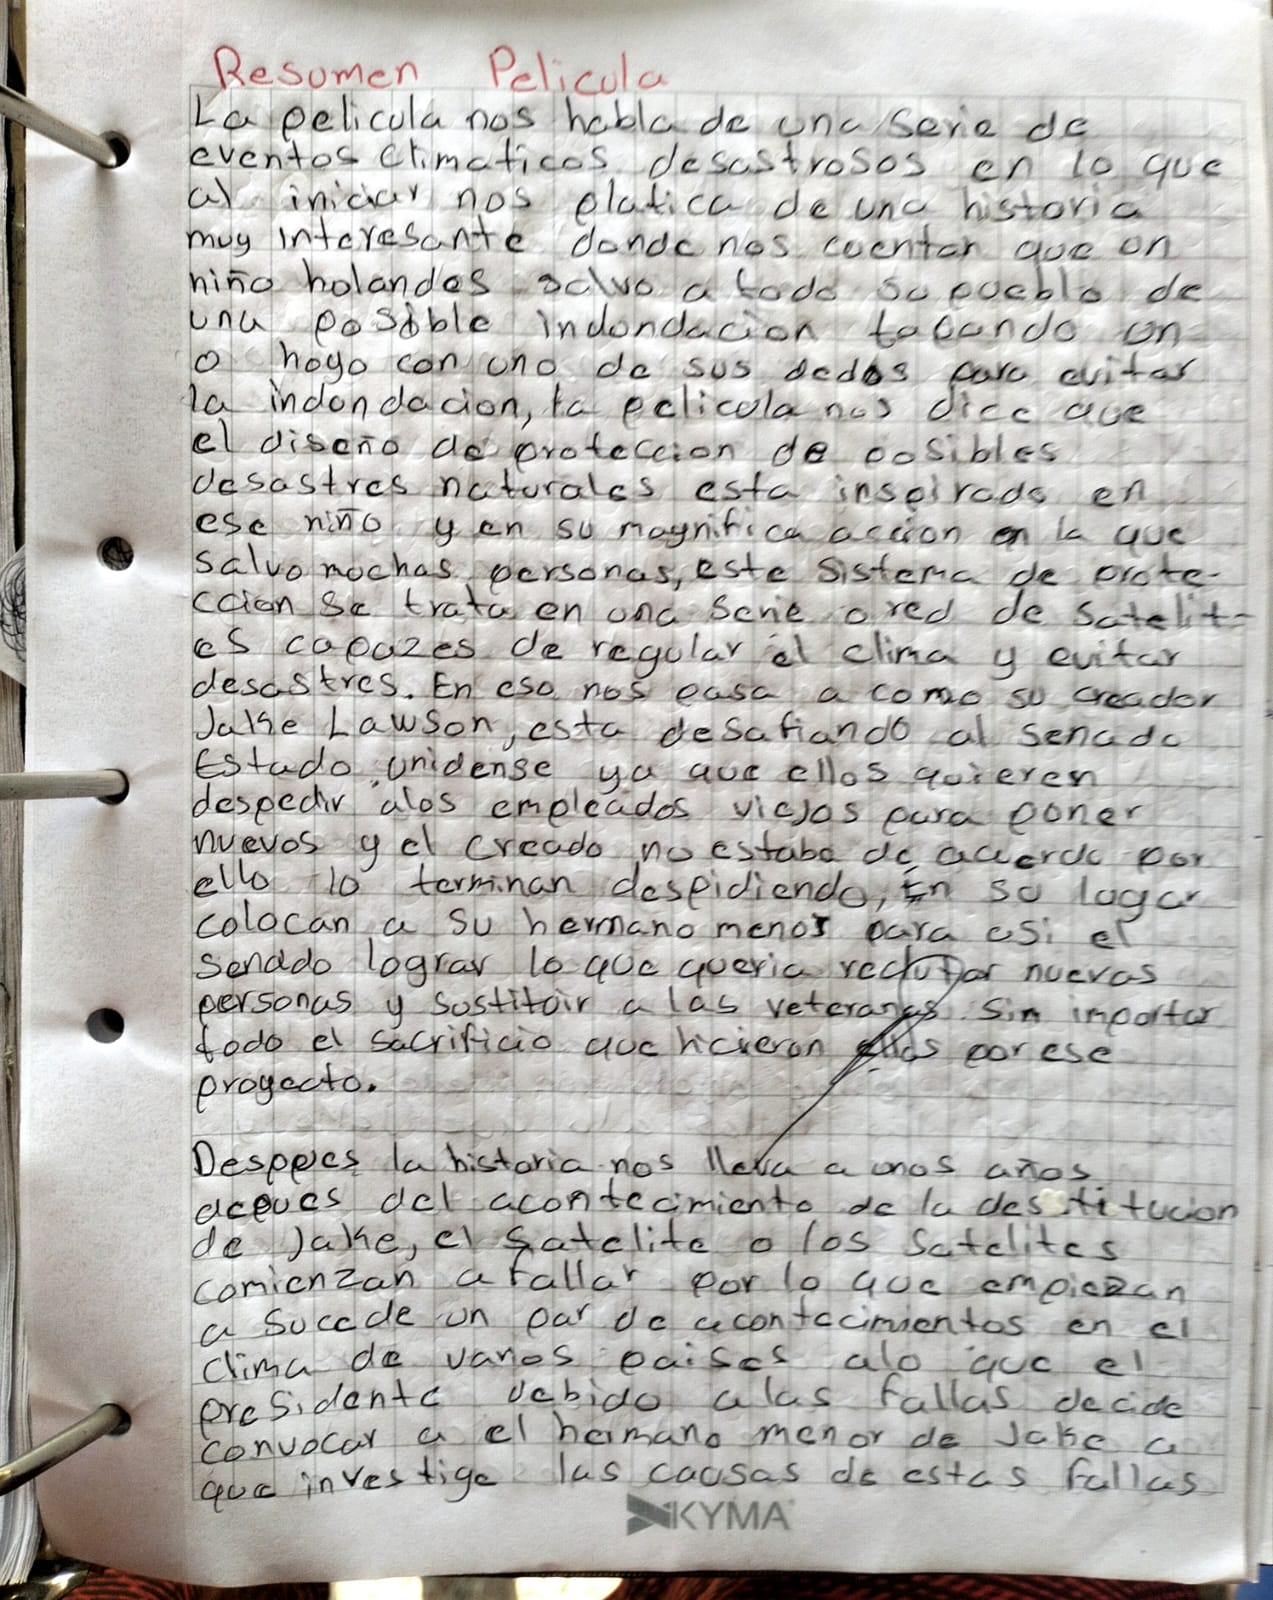 Resumen Pelicula
La pelicula nos habla de una serie de
eventos climaticos desastrosos en lo que
al iniciar nos platica de una historia
muy interesante donde nos cuentan que un
niño holandes salvo a todo su pueblo de
una posible indondacion tapando un
o hoyo con uno de sus dedos para evitar
la indondacion, la pelicula nos dice que
el diseño de proteccion de posibles
desastres naturales esta inspirado en
ese niño y en su magnifica accion en la que
salvo muchas personas, este sistema de prote-
ccion se trata en una serie o red de satelit-
es capazes de regular el clima y evitar
desastres. En eso nos pasa a como su creador
Jake Lawson, esta desafiando al senado
Estado unidense ya que ellos quieren
despedir alos empleados viejos para poner
nuevos y el creado no estaba de acuerdo por
ello lo terminan despidiendo, En su lugar
colocan a su hermano menor para asi el
senado lograr lo que queria reclutar nuevas
personas y sustituir a las veteranas sin importar
todo el sacrificio que hicieron ellas por ese
proyecto.
Despues la historia nos lleva a unos años
depues del acontecimiento de la destitucion
de Jake, el satelite o los satelites
comienzan a fallar por lo que empiezan
a sucede un par de acontecimientos en el
clima de varios paises alo que el
presidente debido alas fallas decide
convocar a el hermano menor de Jake a
que investige las causas de estas fallas
KYMA